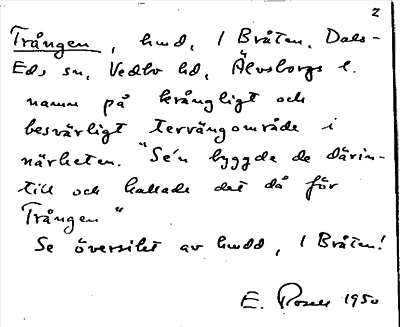 2
Trången, hmd, 1 Bråten, Dals-
Ed, sn, Vedbo hd, Älvsborgs l.
namn på krångligt och
besvärligt terrängområde i
närheten. "Se'n byggde de därin-
till och kallade det då för
Trången"
Se översikt av hmdd, 1 Bråten!
E. 1950